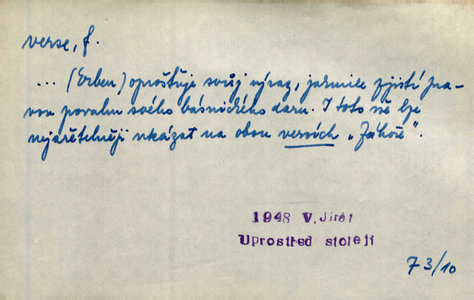 verse, f.
... (Erben) oprošťuje svůj výraz, jakmile zjistí pra-
vou povahu svého básnického daru. I toto lze
nejzřetelněji ukázat na obou versích „Záhoře".
1948 V. Jirát
Uprostřed století
73/10